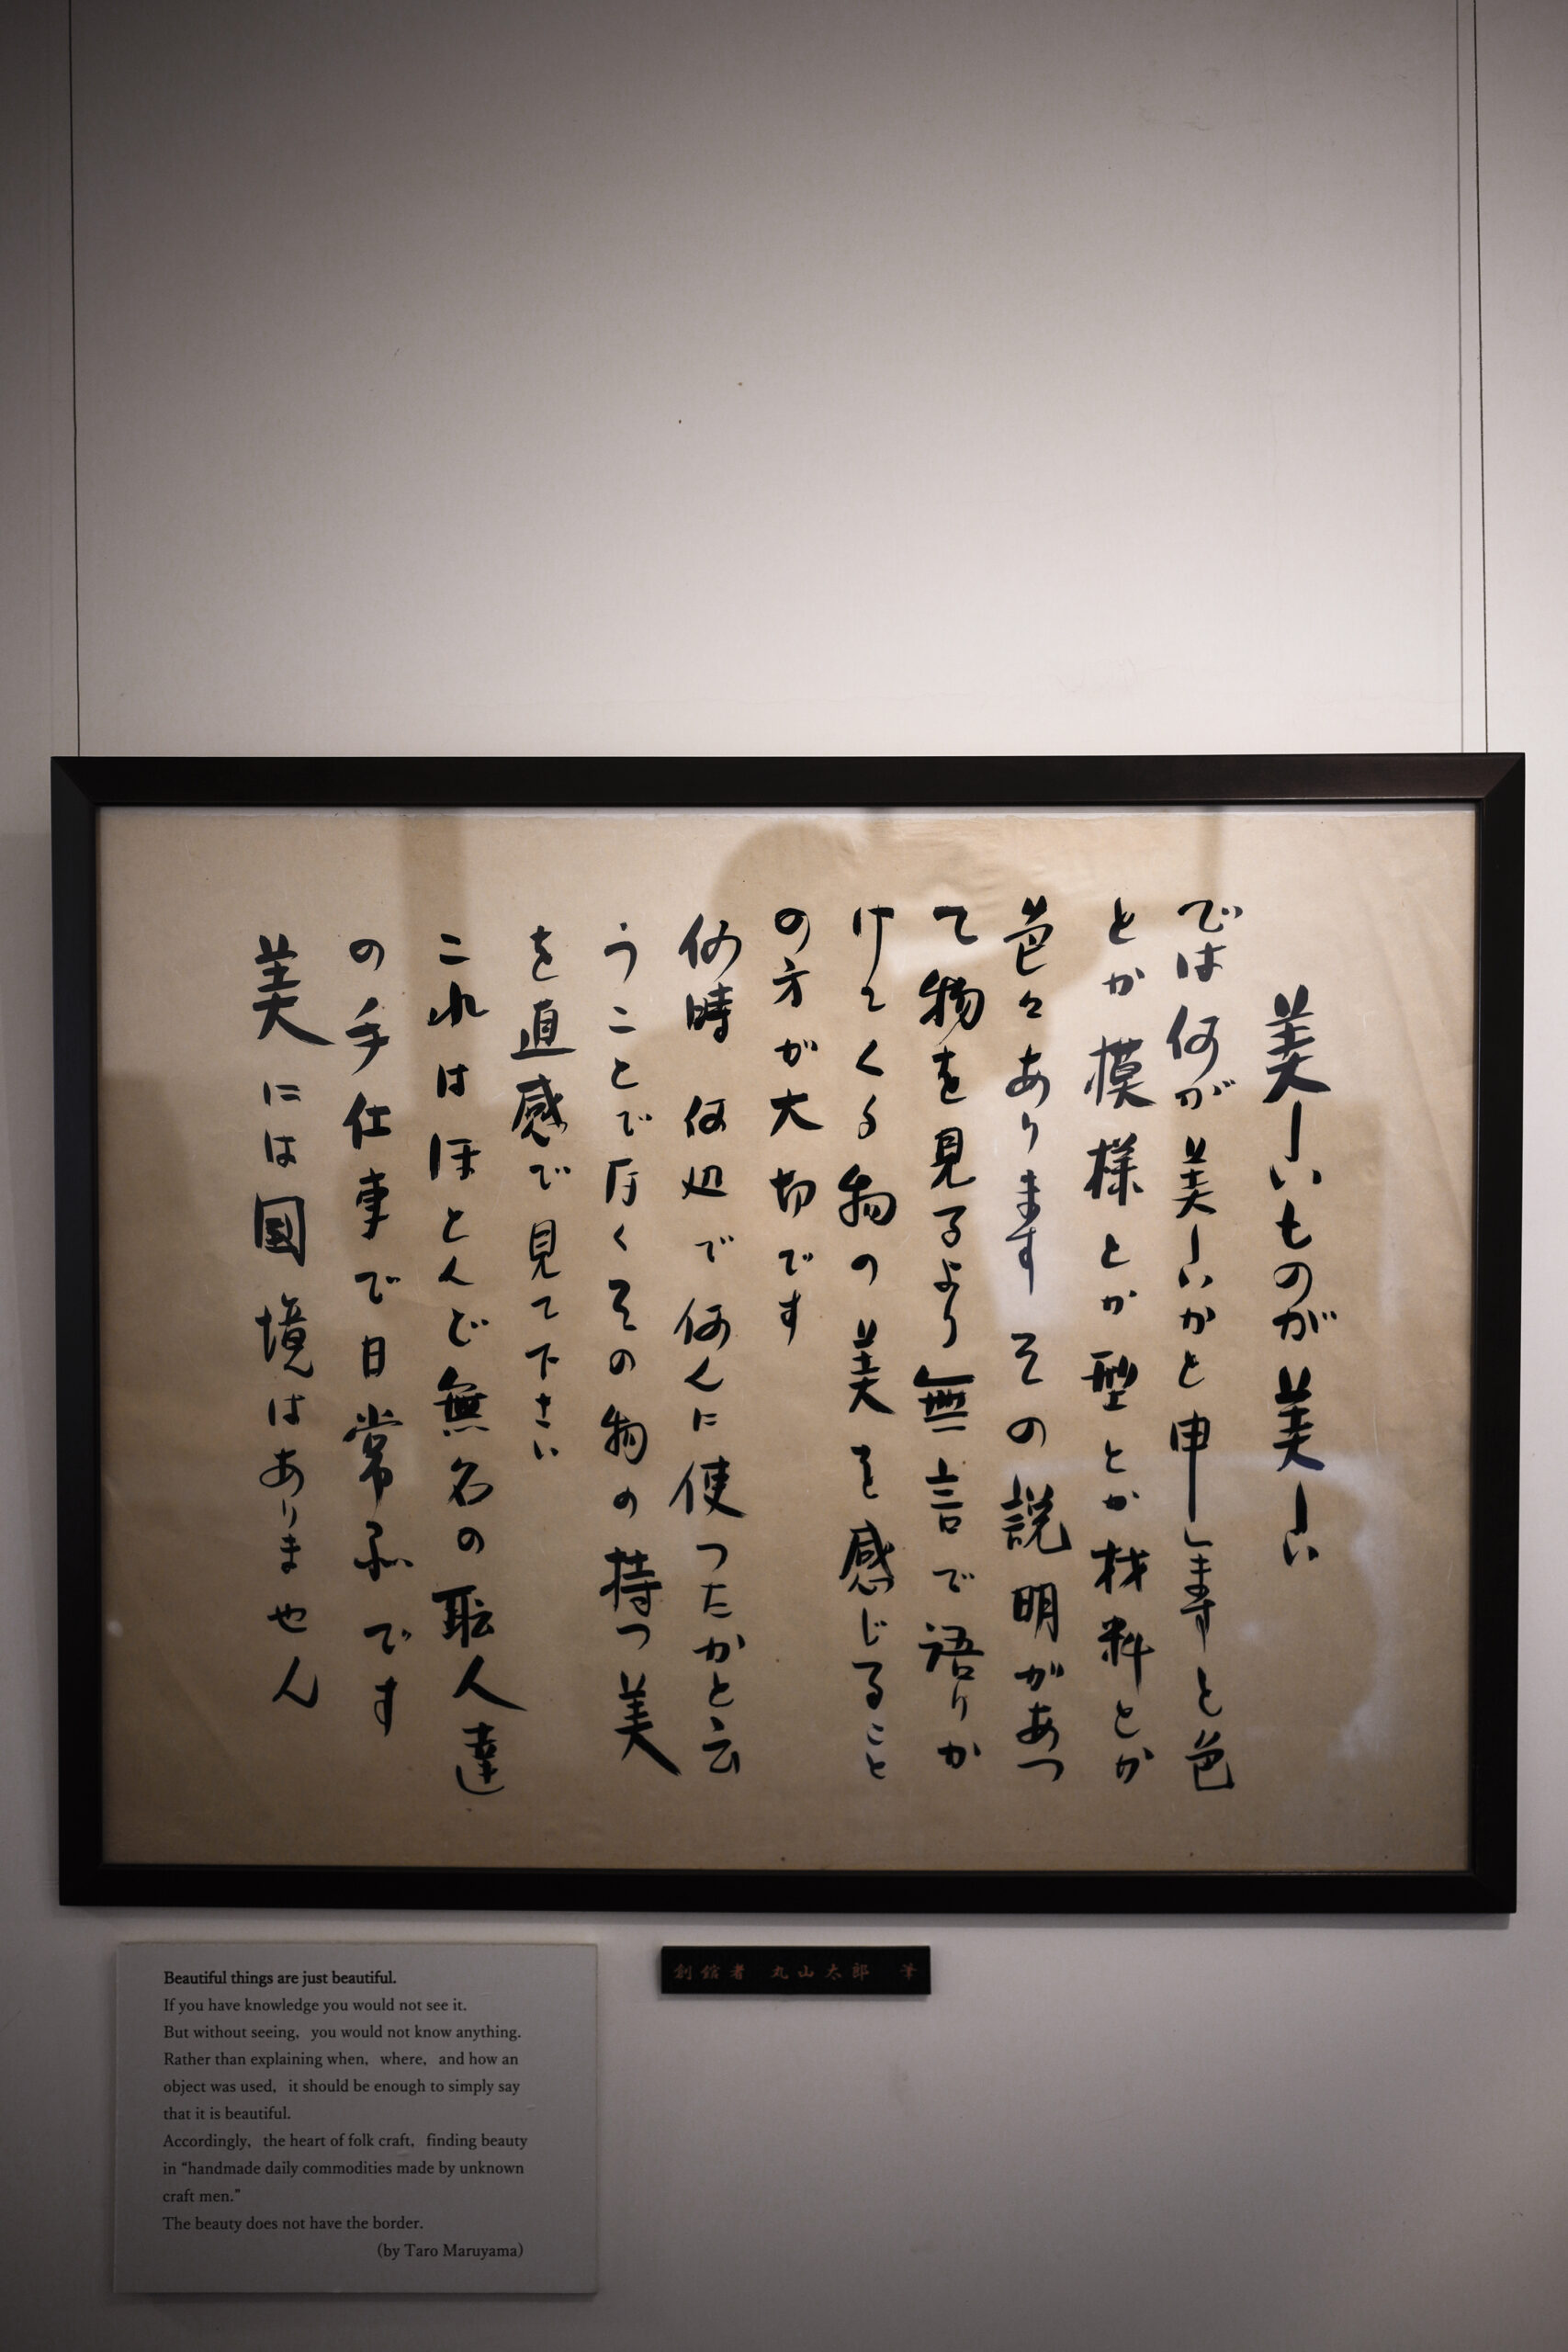 美しいものが美しい
では何が美しいかと申しますと色
とか模様とか型とか材料とか
色々あります その説明があつ
て物を見るより無言で語りか
けてくる物の美を感じること
の方が大切です
何時 何処で何んに使つたかと云
うことで なくその物の持つ美
を直感で見て下さい
これはほとんど無名の職人達
の手仕事で日常品です
美には國境はありません
創館者 丸山太郎 筆
Beautiful things are just beautiful.
If you have knowledge you would not see it.
But without seeing, you would not know anything.
Rather than explaining when, where, and how an
object was used, it should be enough to simply say
that it is beautiful.
Accordingly, the heart of folk craft, finding beauty
in “handmade daily commodities made by unknown
craft men.”
The beauty does not have the border.
(by Taro Maruyama)